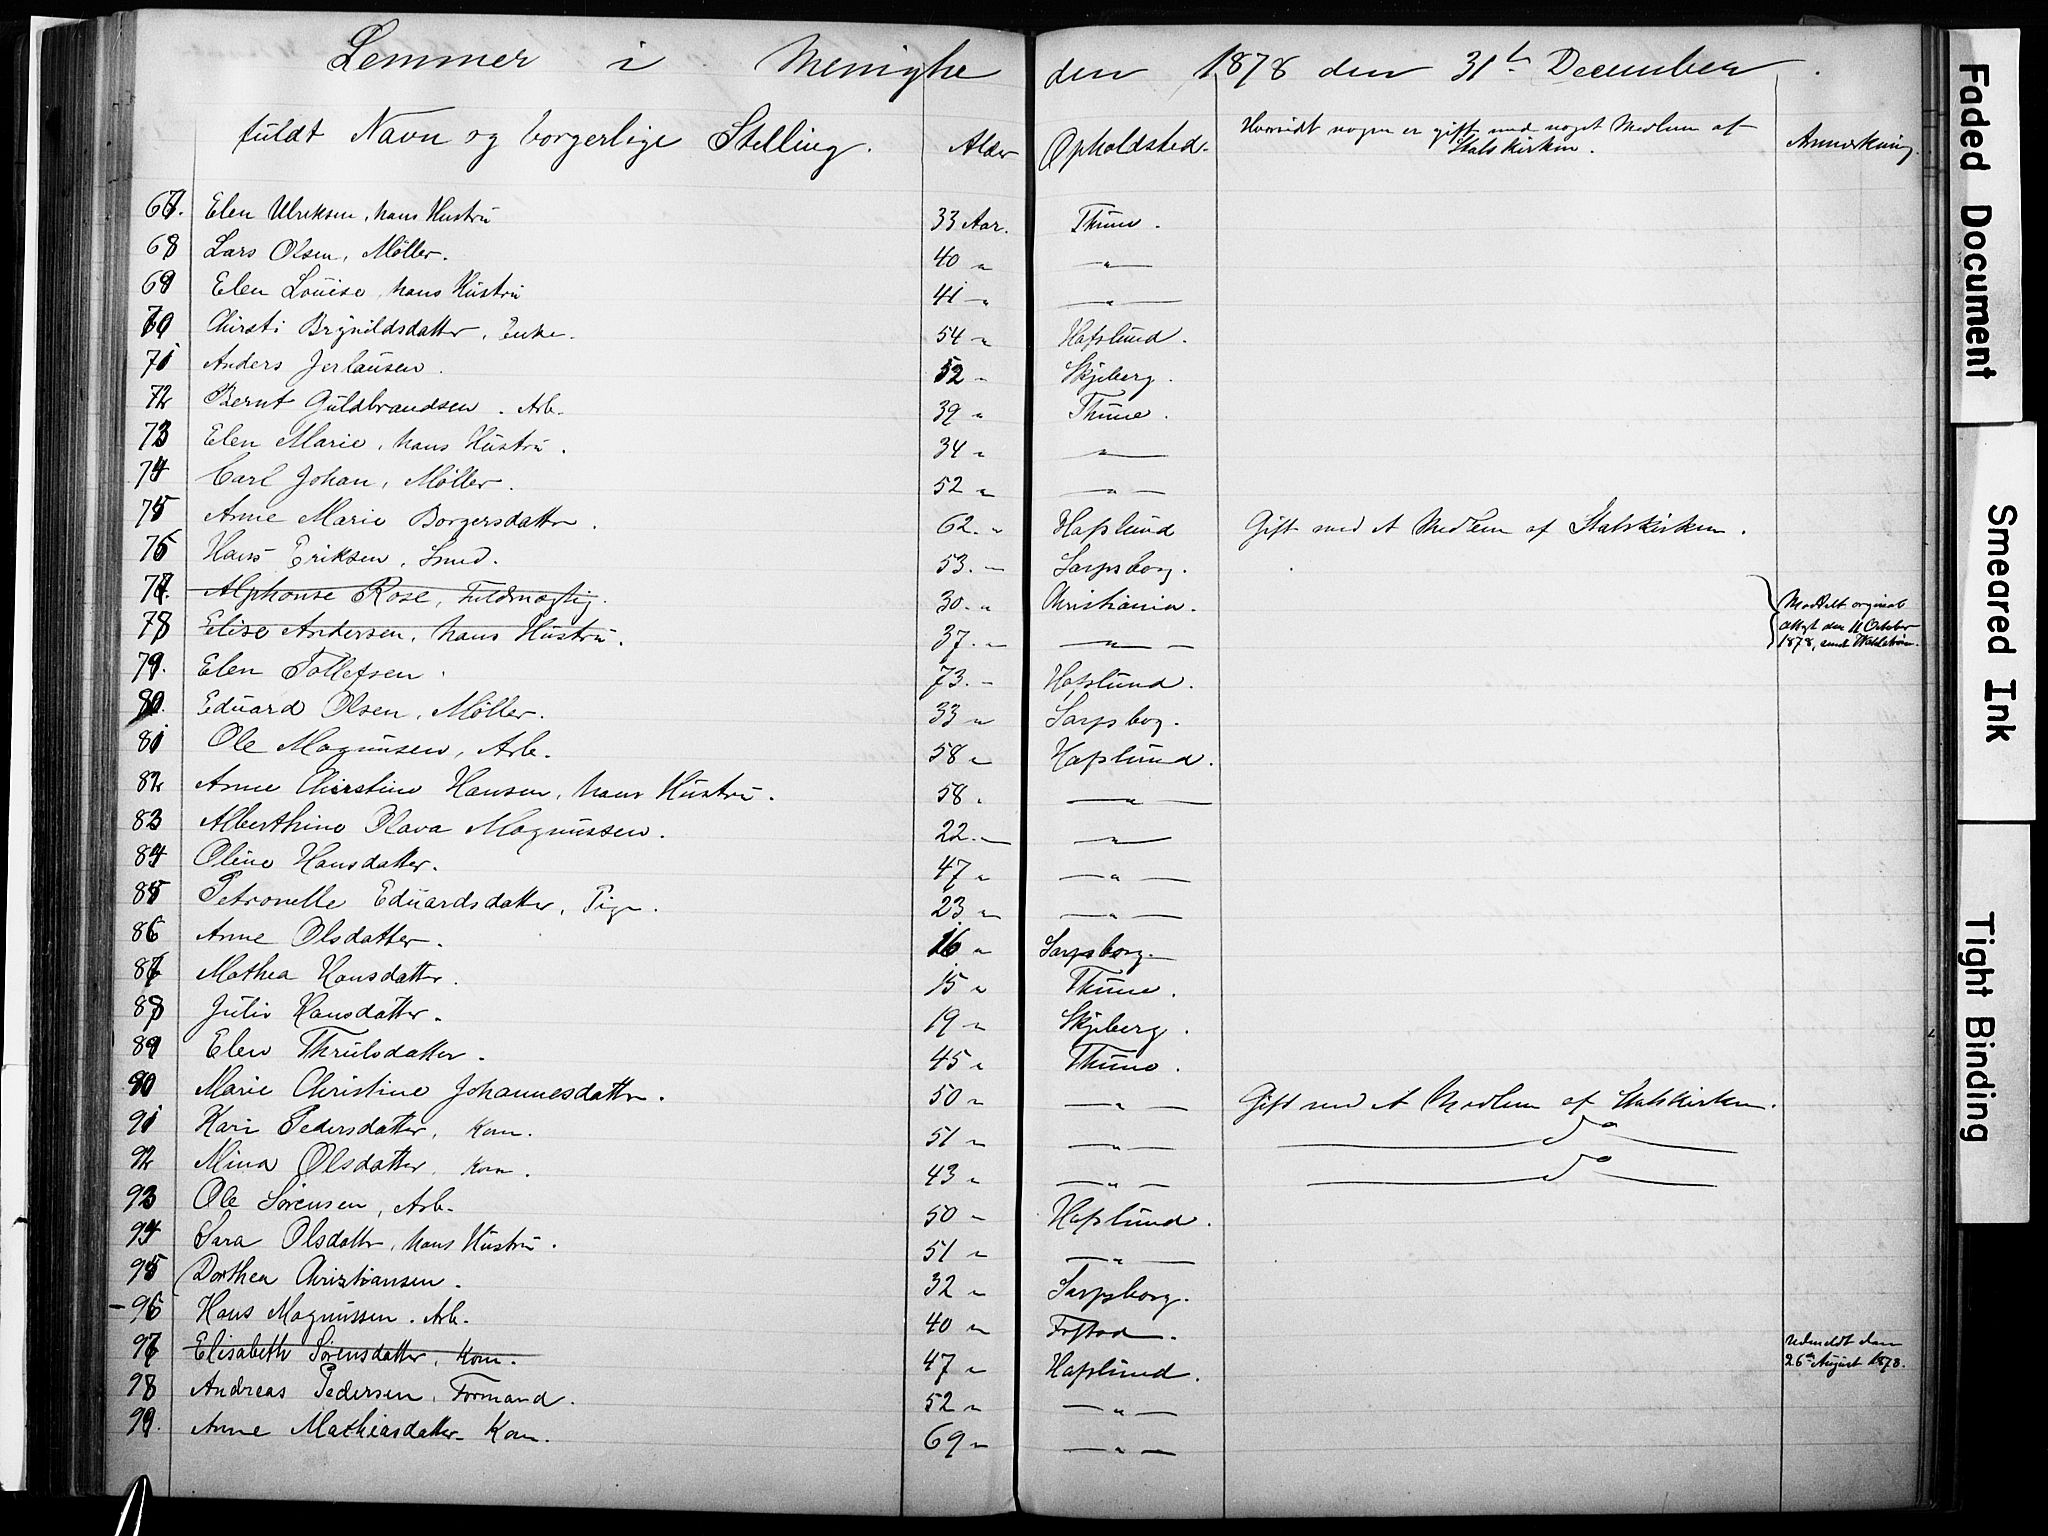 Lemmer i Menighe den 1878 den 31te December.
fuldt Navn og borgerlige Stilling. Alder Opholdsted. Hvorvidt nogen er gift med noget Medlem af Statskirken. Anmærkning.
67. Elen Ulriksen, hans Hustrü 33 Aar. Thüne.
68 Lars Olsen, Møller. 40 " — " —
69 Elen Loüise, hans Hüstrü 41 " — " —
70 Chirsti Brÿnildsdatter, Enke. 54 " Hafslünd.
71 Anders Jerlaüsen. 52 " Skjeberg.
72 Bernt Güldbrandsen. Arb. 39 " Thüne.
73 Elen Marie, hans Hüstrü. 34 " — " —
74 Carl Johan, Møller. 52 " — " —
75 Anne Marie Borgersdatter. 62. " Hafslünd Gift med et Medlem af Statskirken.
76 Hans Eriksen, Smed. 53. " Sarpsborg.
77. Alphonse Rose, Füldmægtig. 30. " Christiania. Meddelt orginal
78 Elise Andersen, hans Hüstrü. 37. " — " — attest den 11 October
1878, Wahlstrøm.
79. Elen Tollefsen. 73. " Hafslünd.
80. Edüard Olsen, Møller. 33 " Sarpsbog.
81 Ole Magnüsen, Arb. 58 " Hafslünd.
82 Anne Chirstine Hansen, hans Hüstrü. 58 " — " —
83 Alberthine Olava Magnüssen. 22. " — " —
84 Oline Hansdatter. 47 " — " —
85 Petronelle Edüardsdatter, Pige. 23 " — " —
86 Anne Olsdatter. 16 " Sarpsborg.
87 Mathea Hansdatter. 15 " Thüne.
88 Jülie Hansdatter. 19 " Skjeberg.
89 Elen Thrülsdatter. 45 " Thüne.
90 Marie Christine Johannesdatter. 50 " — " — Gift med et Medlem af Statskirken.
91 Kari Pedersdatter, Kone. 51 " — " — — do —
92 Mina Olsdatter, Kone. 43 " — " — — do —
93 Ole Sørensen, Arb. 50 " Hafslünd.
94 Sara Olsdatter, hans Hüstrü. 51 " — " —
95 Dorthea Christiansen. 32 " Sarpsborg.
96 Hans Magnüssen. Arb. 40 " Frstad.
97 Elisabeth Sørensdatter, Kone. 47 " Hafslünd. Udmeldt den
26de Aügüst 1878.
98 Andreas Pedersen, Formand. 52 " — " —
99. Anne Mathiasdatter. Kone. 69 " — " —
Faded Document
Smeared Ink
Tight Binding